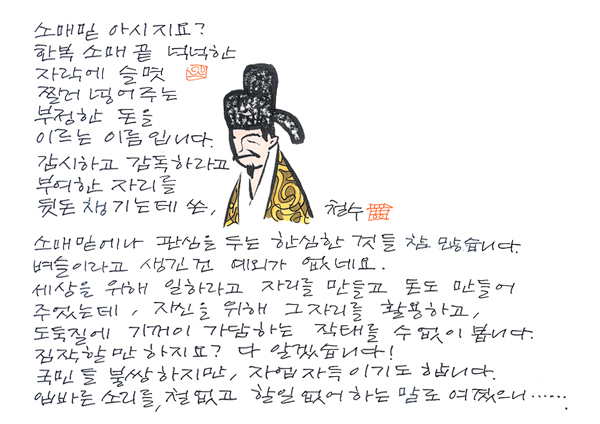 소매밑 아시지요?
한복 소매 끝 넉넉한
자락에 슬몃
찔러 넣어주는
부정한 돈을
이르는 이름입니다.
감시하고 감독하라고
부여한 자리를
뒷돈 챙기는데 쓴,
철수
소매밑에나 관심을 두는 한심한 것들 참 많습니다.
벼슬이라고 생긴 건 예외가 없네요.
세상을 위해 일하라고 자리를 만들고 돈도 만들어
주었는데, 자신을 위해 그 자리를 활용하고,
도둑질에 기꺼이 가담하는 작태를 수없이 봅니다.
짐작할 만 하지요? 다 알겠습니다!
국민들 불쌍하지만, 자업자득이기도 합니다.
입바른 소리를, 철없고 할일 없어 하는 말로 여겼으니······